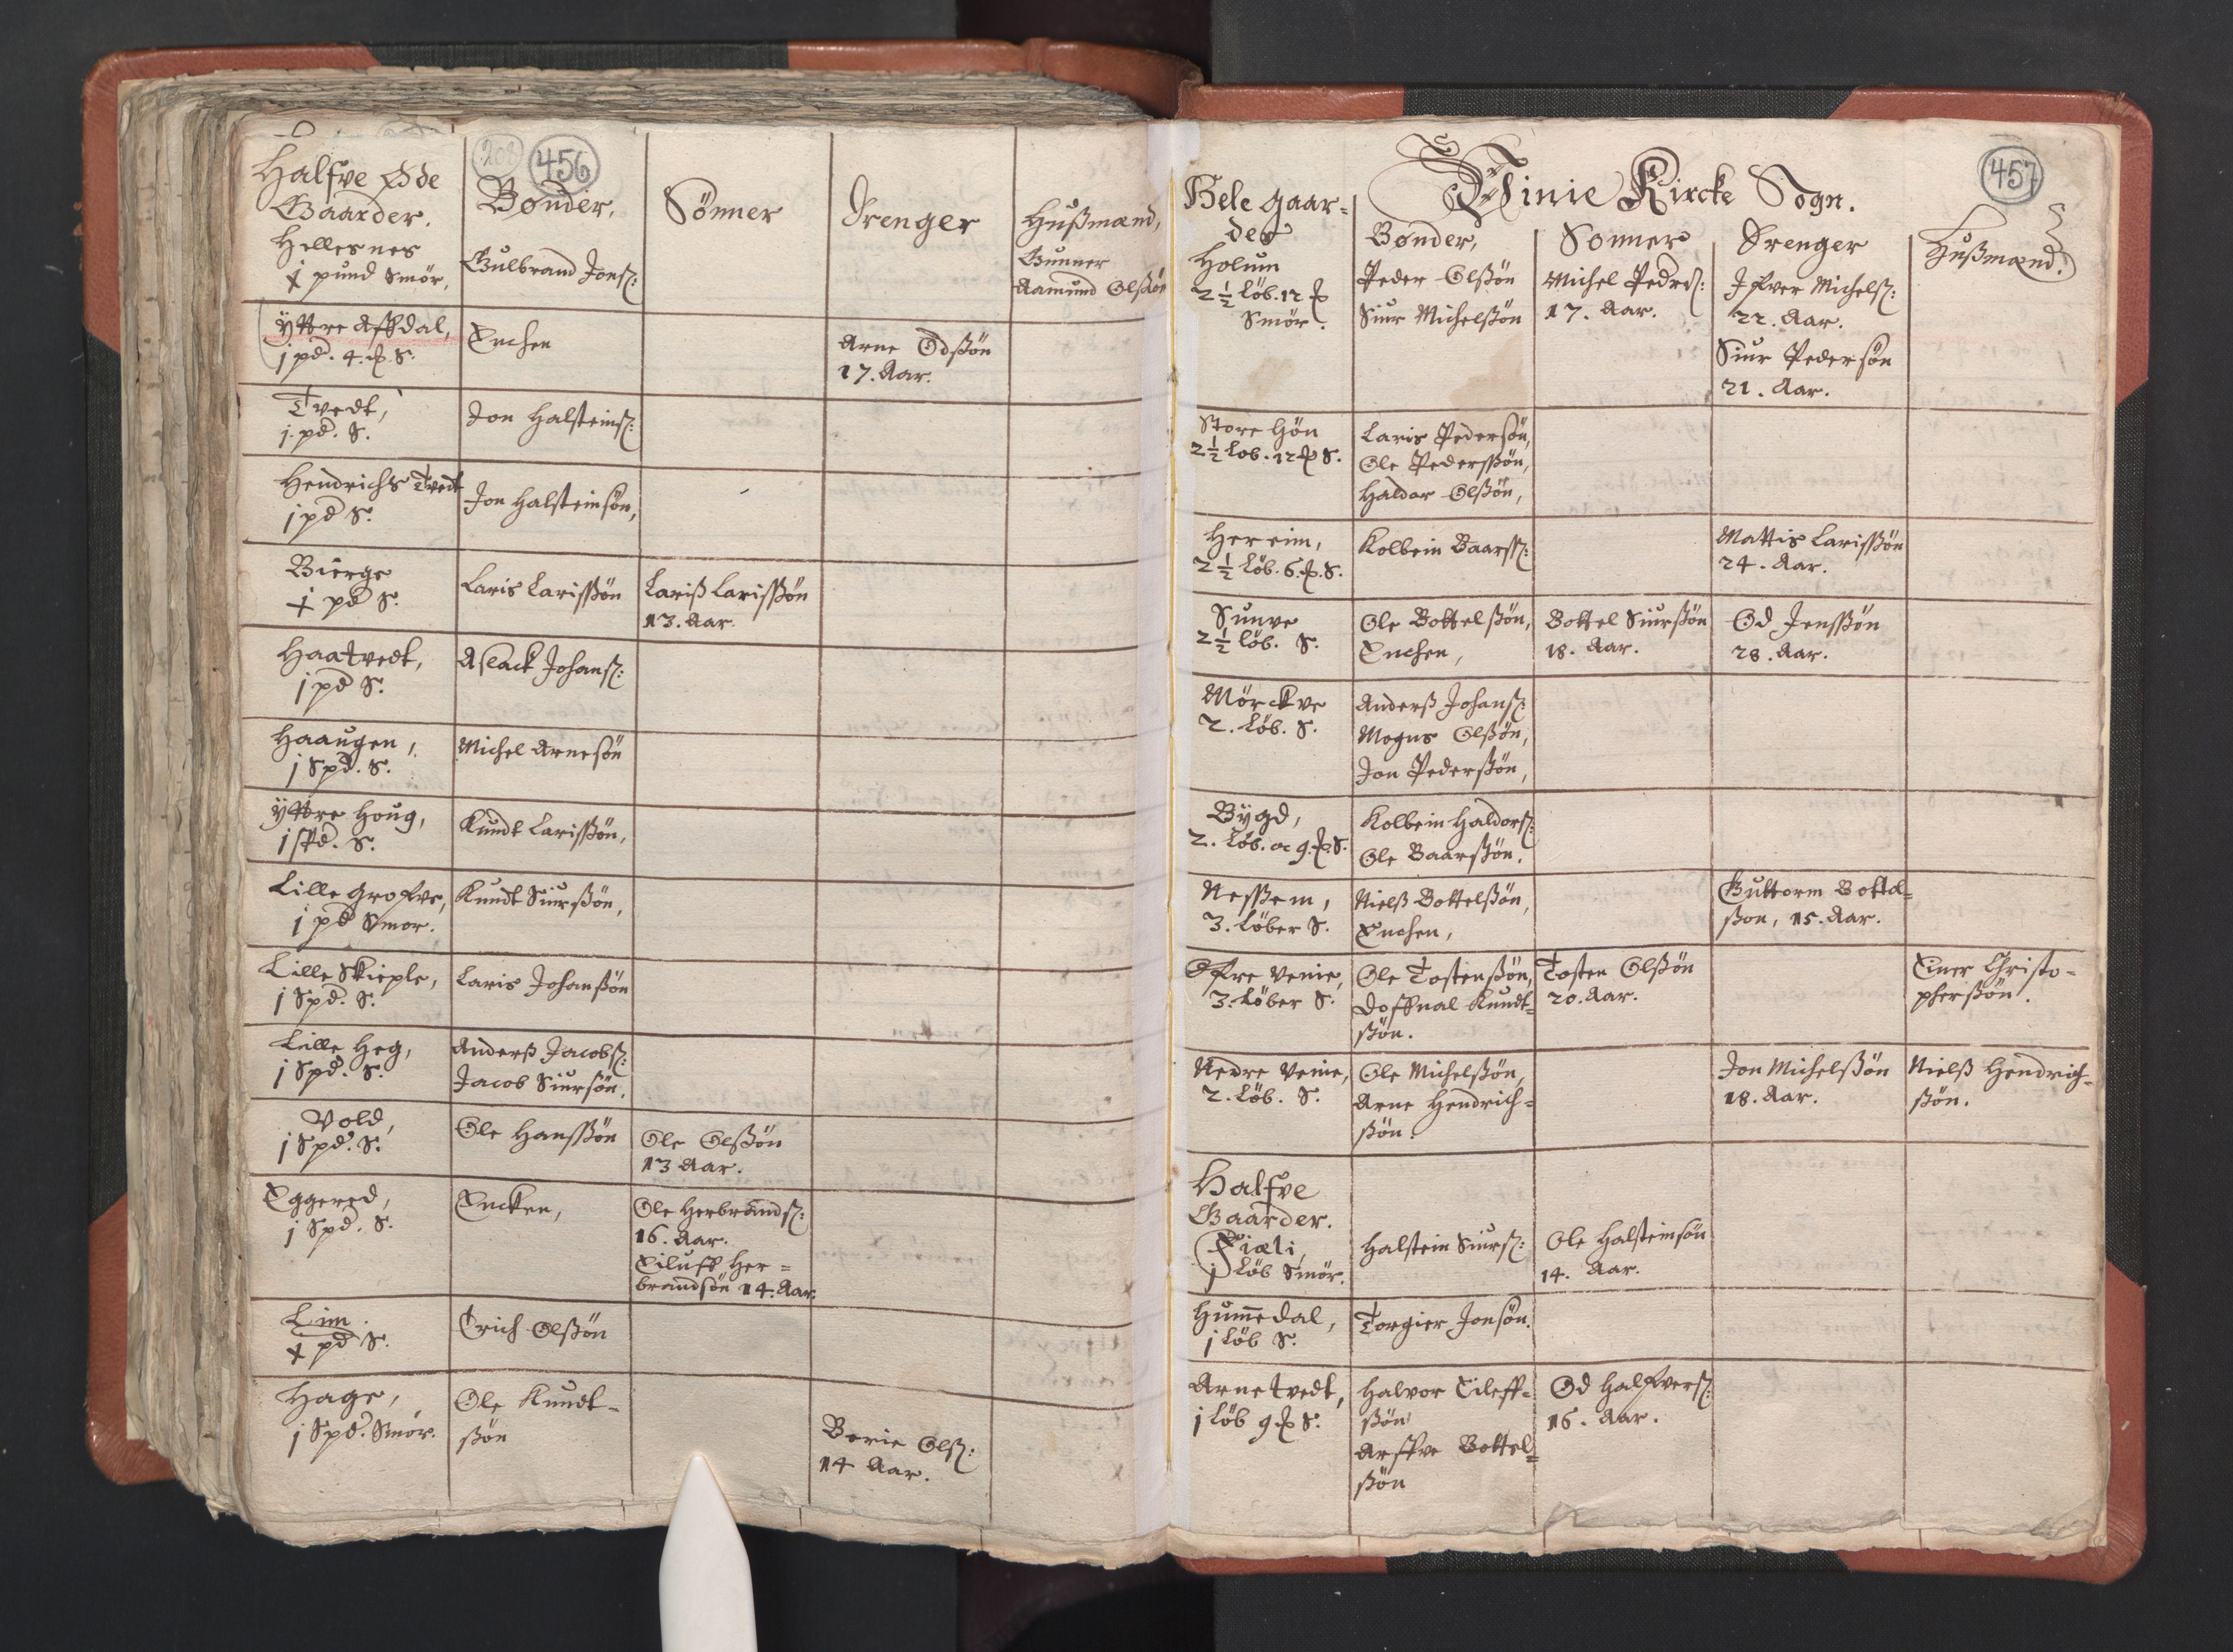 208 456
Halfve Øde
Gaarder.
Bønder,
Sönner
Drenger
Hußmænd,
Hellesnes
½ pund Smör,
Gulbrand Jonß:
Gunner
Aamund Olßön
ÿttre Affdal,
j pd. 4. S.
Enchen
Arne Odßön
17. Aar.
Tvedt,
j. pd. S.
Jon Halsteinß:
Hendrichs Tvedt
j pd S.
Jon Halsteinsön,
Bierge
½ pd S.
Laris Larisßön
Lariß Larisßön
13. Aar.
Haatvedt,
j pd S.
Aslack Johanß:
Haaugen,
j Spd. S.
Michel Arnesön
ÿttre Houg,
j Spd. S.
Knudt Larisßön,
Lille Grofve,
j pd Smor.
Knudt Siurßön,
Lille Skieple,
j Spd. S.
Laris Johanßön
Lille Heg,
j Spd. S.
Anderß Jacobß:
Jacob Siursön.
Vold,
j Spd. S.
Ole Hansßön
Ole Olßön
13 Aar.
Eggered,
j Spd. S.
Encken,
Ole Herbrandß:
16. Aar.
Eiluff Her=
brandsön 14. Aar.
Lim.
½ pd S.
Erich Olßön
Hage,
j Spd. Smör.
Ole Knudt=
ßön
Berie Olß:
14 Aar.
457
Vinie Kircke Sogn.
Hele gaar=
der
Bønder,
Sonner
Drenger
Hußmænd.
Holum
2½ Löb. 12
Smör.
Peder Olßön
Siur Michelßön
Michel Pedrß:
17. Aar.
Jfver Michelß:
22. Aar.
Siur Pedersön
21. Aar.
Store Hön
2½ Lob. 12 S.
Laris Pedersön,
Ole Pedersßön,
Haldor Olßön,
Hereim,
2½ Löb. 6. S.
Kolbein Baarsß:
Mattis Larisßön
24. Aar.
Sunve
2½ Löb. S.
Ole Bottelßön,
Enchen,
Bottel Siurßön
18. Aar.
Od Jensßön
28. Aar.
Mörckve
2. Löb. S.
Anderß Johanß:
Mogns Olßön,
Jon Pederßön,
Bÿgd,
2. Löb. oc 9. S.
Kolbein Haldorß:
Ole Baarßön.
Nesßem,
3. Löber S.
Nielß Bottelßön,
Enchen,
Guttorm Bottel=
ßon, 15. Aar.
Øfre Venie,
3. Löber S.
Ole Tostenßön,
Doffnal Knudt=
ßön.
Tosten Olßön
20. Aar.
Einer Christo=
pherßön.
Nedre Venie,
2. Löb. S.
Ole Michelßön,
Arne Hendrich=
ßön.
Jon Michelßön
18. Aar.
Nielß Hendrich=
ßön.
Halfve
Gaarder.
Fiæli,
j Löb Smör.
Halstein Siurß:
Ole Halsteinsön
14. Aar.
Hum̄edal,
j Löb S.
Torgier Jonsön.
Arnetvedt,
j Löb 9 S.
Halvor Eileff=
ßön
Arffve Bottel=
ßön
Od Halfverß:
16. Aar.